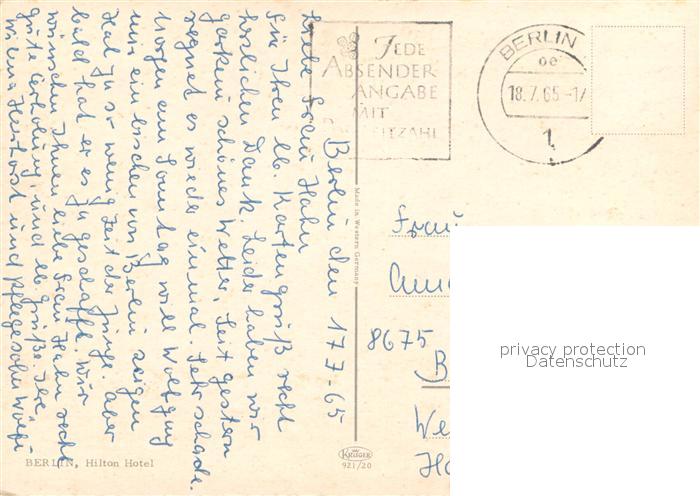 Berlin den 17.7.65
Liebe Frau Hahn
Für Ihren lb. Kartengruß recht
herzlichen Dank. Leider haben wir
gar kein schönes Wetter, seit gestern
regnet es wieder einmal. Sehr schade.
Morgen am Sonntag will Wolfgang
mir ein bischen von Berlin zeigen
Hat ja so wenig Zeit der Junge. Aber
bald hat er es ja geschafft. Wir
wünschen Ihnen liebe Frau Hahn recht
gute Erholung, und lb. Grüße. Ihre,
Herbst und Pflegesohn Wolfi
JEDE
ABSENDER
ANGABE
MIT
POSTLEITZAHL
BERLIN
oe
18.7.65-1
1
Made in Western Germany
Frau
8675
B
We
Ha
privacy protection
Datenschutz
BERLIN, Hilton Hotel
KRÜGER
921/20